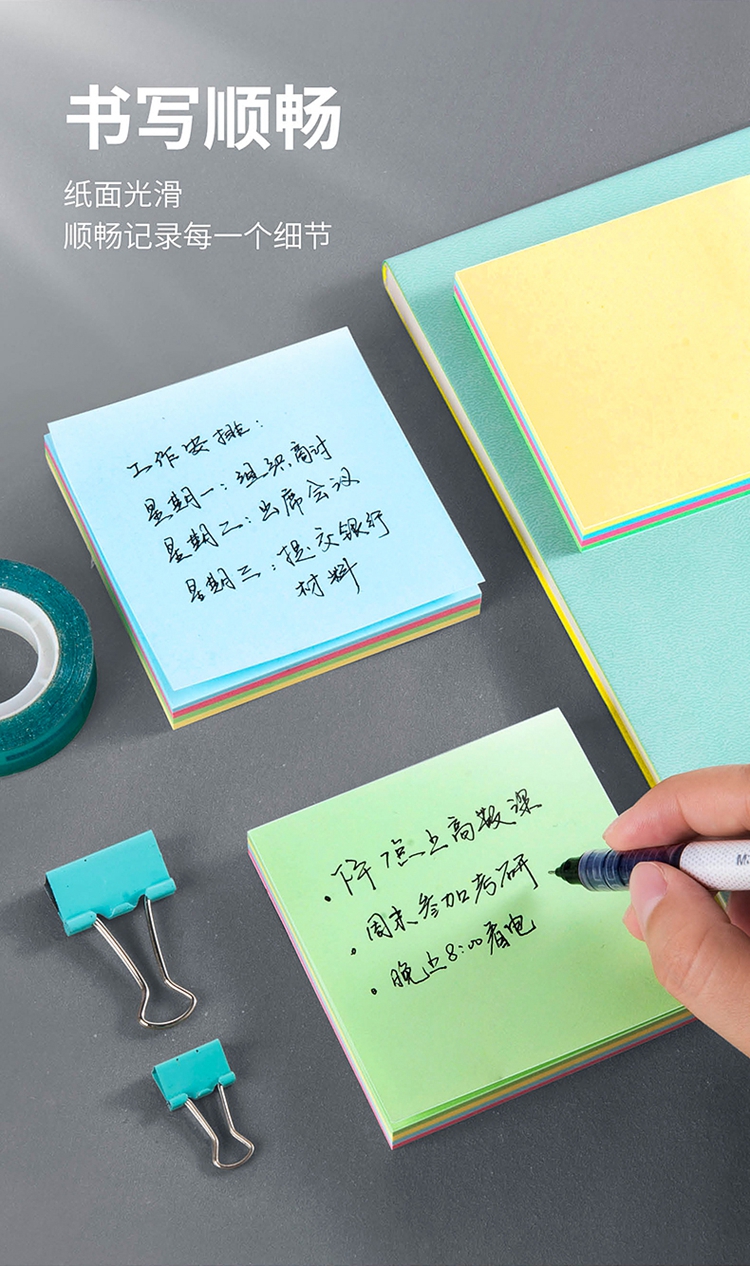 书写顺畅
纸面光滑
顺畅记录每一个细节
工作安排:
星期一:组织商讨
星期二:出席会议
星期三:提交银行
材料
· 下午7点上高数课
· 周末参加考研
· 晚上8:00看电